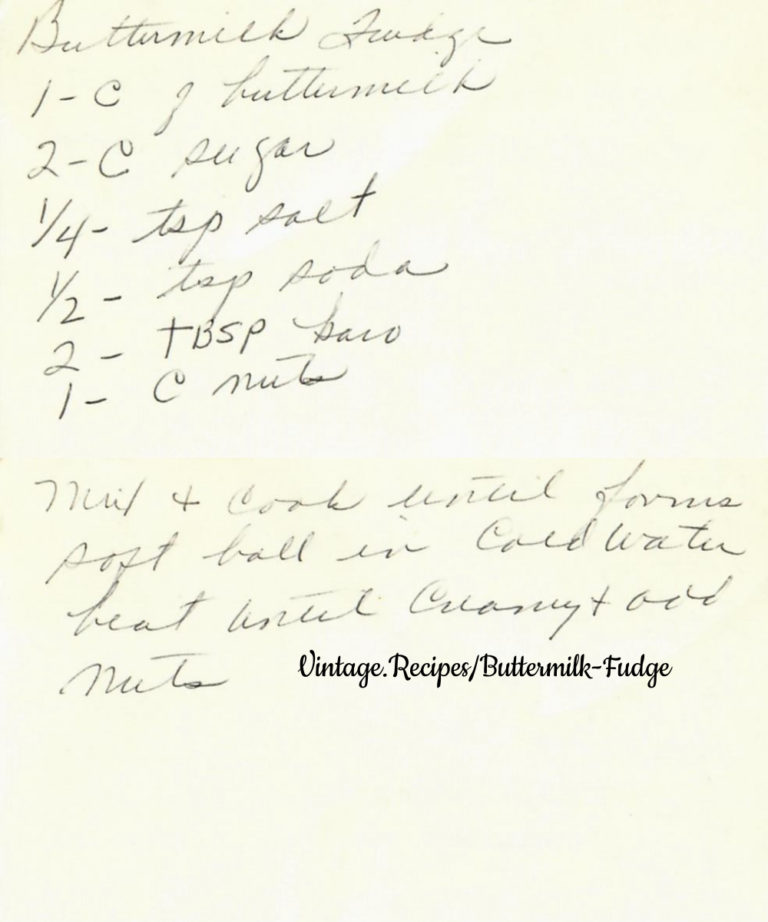 Buttermilk Fudge
1-C of buttermilk
2-C sugar
1/4- tsp salt
1/2- tsp soda
2- TBSP karo
1- C nuts
Mix + cook until forms
soft ball in Cold Water
beat until Creamy + add
Nuts
Vintage.Recipes/Buttermilk-Fudge